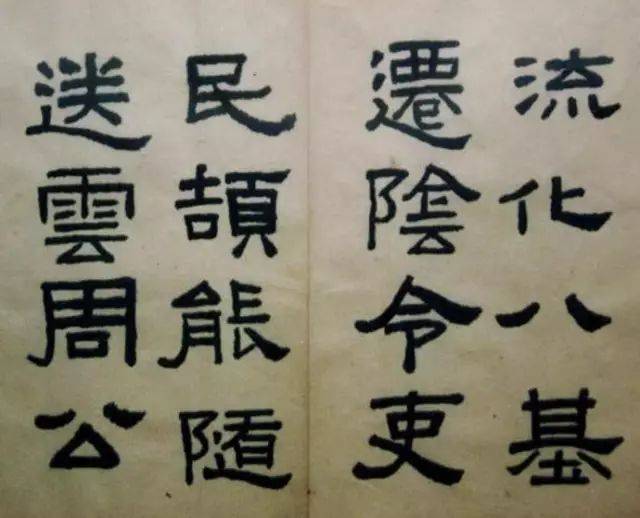 流化八基
遷陰令吏
民頡能隨
送雲周公